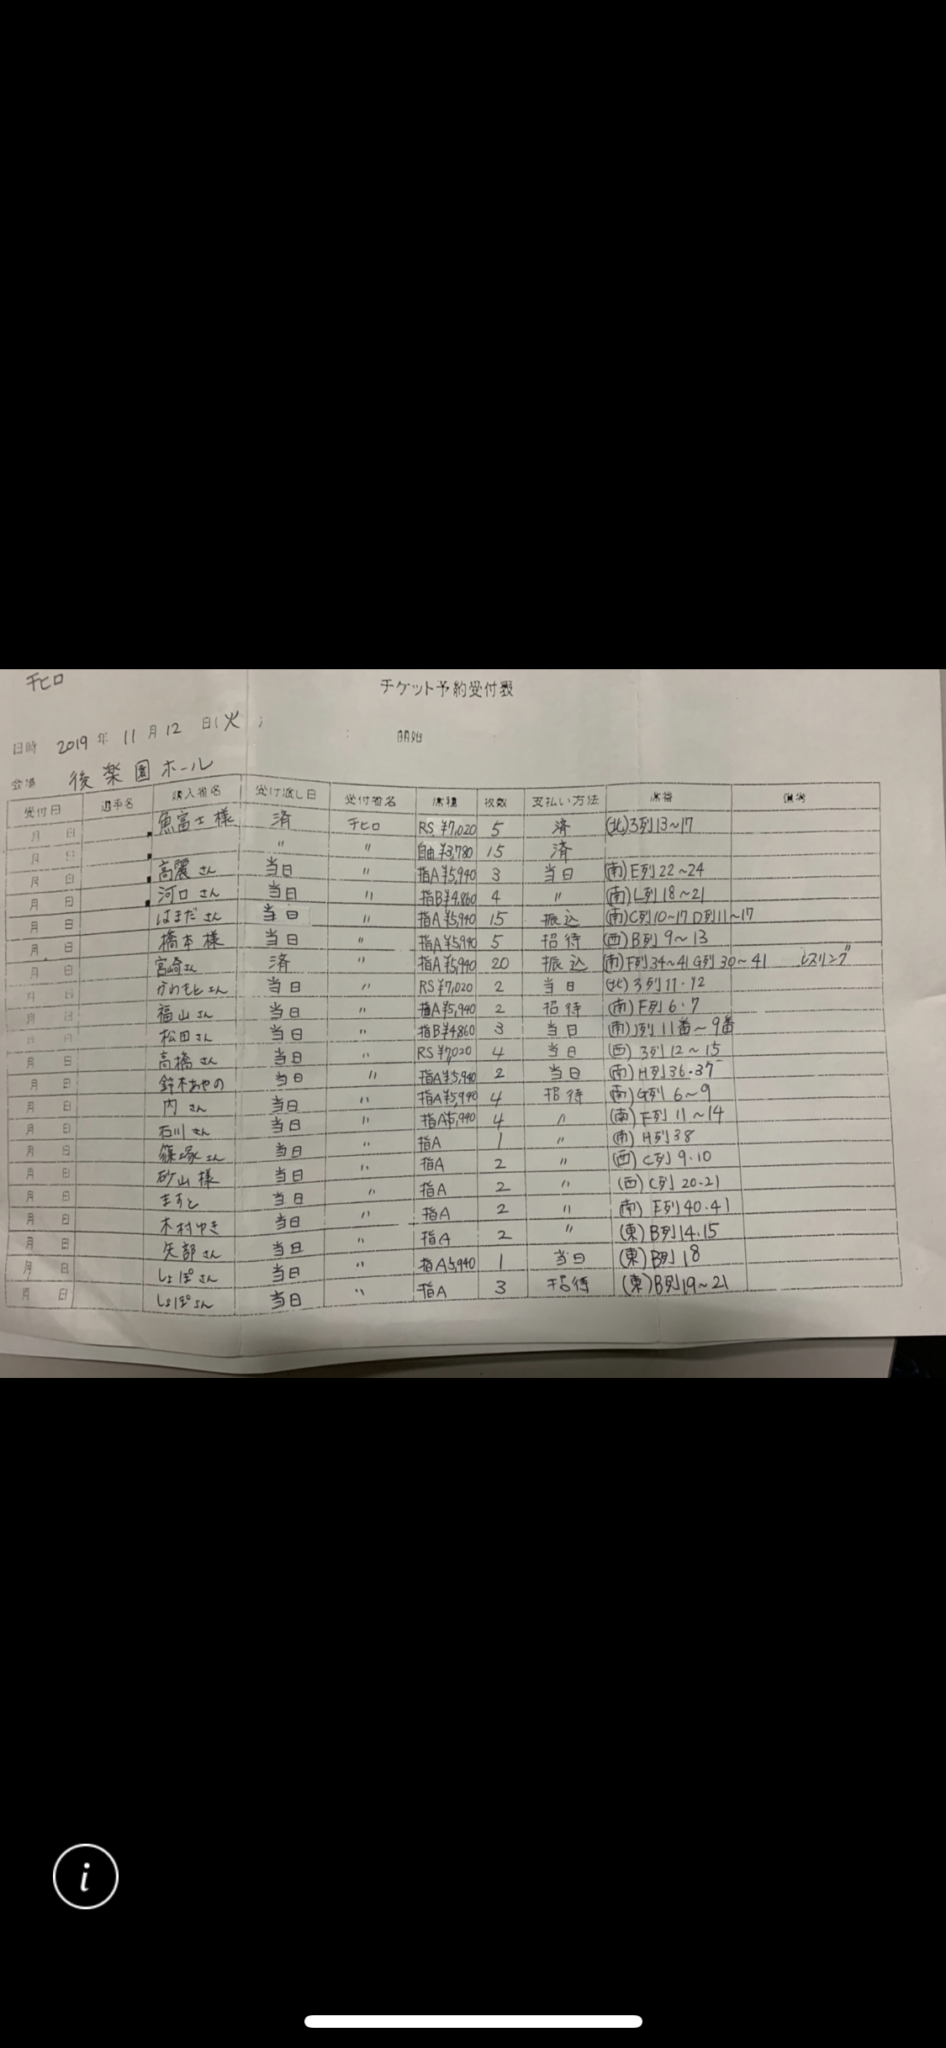 チヒロ
チケット予約受付表
日時 2019年 11月 12日(火)
開始
会場 後楽園ホール
受付日 選手名 購入者名 受け渡し日 受付者名 席種 枚数 支払い方法 席番 備考
月 日 魚富士様 済 チヒロ RS ¥7,020 5 済 (北)3列13~17
月 日 〃 〃 自由 ¥3,780 15 済
月 日 高麗さん 当日 〃 指A ¥5,940 3 当日 (南)E列22~24
月 日 河口さん 当日 〃 指B ¥4,860 4 〃 (南)L列18~21
月 日 はまださん 当日 〃 指A ¥5,940 15 振込 (南)C列10~17 D列11~17
月 日 橋本様 当日 〃 指A ¥5,940 5 招待 (西)B列9~13
月 日 宮崎さん 済 〃 指A ¥5,940 20 振込 (南)F列34~41 G列30~41 レスリング
月 日 かわもとさん 当日 〃 RS ¥7,020 2 当日 (北)3列11・12
月 日 福山さん 当日 〃 指A ¥5,940 2 招待 (南)F列6・7
月 日 松田さん 当日 〃 指B ¥4860 3 当日 (南)J列11番~9番
月 日 高橋さん 当日 〃 RS ¥7020 4 当日 (西)3列12~15
月 日 鈴木あやの 当日 〃 指A ¥5,940 2 当日 (南)H列36・37
月 日 内さん 当日 〃 指A ¥5,940 4 招待 (南)G列6~9
月 日 石川さん 当日 〃 指A ¥5,940 4 〃 (南)F列11~14
月 日 篠塚さん 当日 〃 指A 1 〃 (南)H列38
月 日 砂山様 当日 〃 指A 2 〃 (西)C列9・10
月 日 ますと 当日 〃 指A 2 〃 (西)C列20・21
月 日 木村ゆき 当日 〃 指A 2 〃 (南)E列40・41
月 日 矢部さん 当日 〃 指A 2 〃 (東)B列14・15
月 日 しょぱさん 当日 〃 指A 5,940 1 当日 (東)B列18
月 日 しょぱさん 当日 〃 指A 3 招待 (東)B列19~21